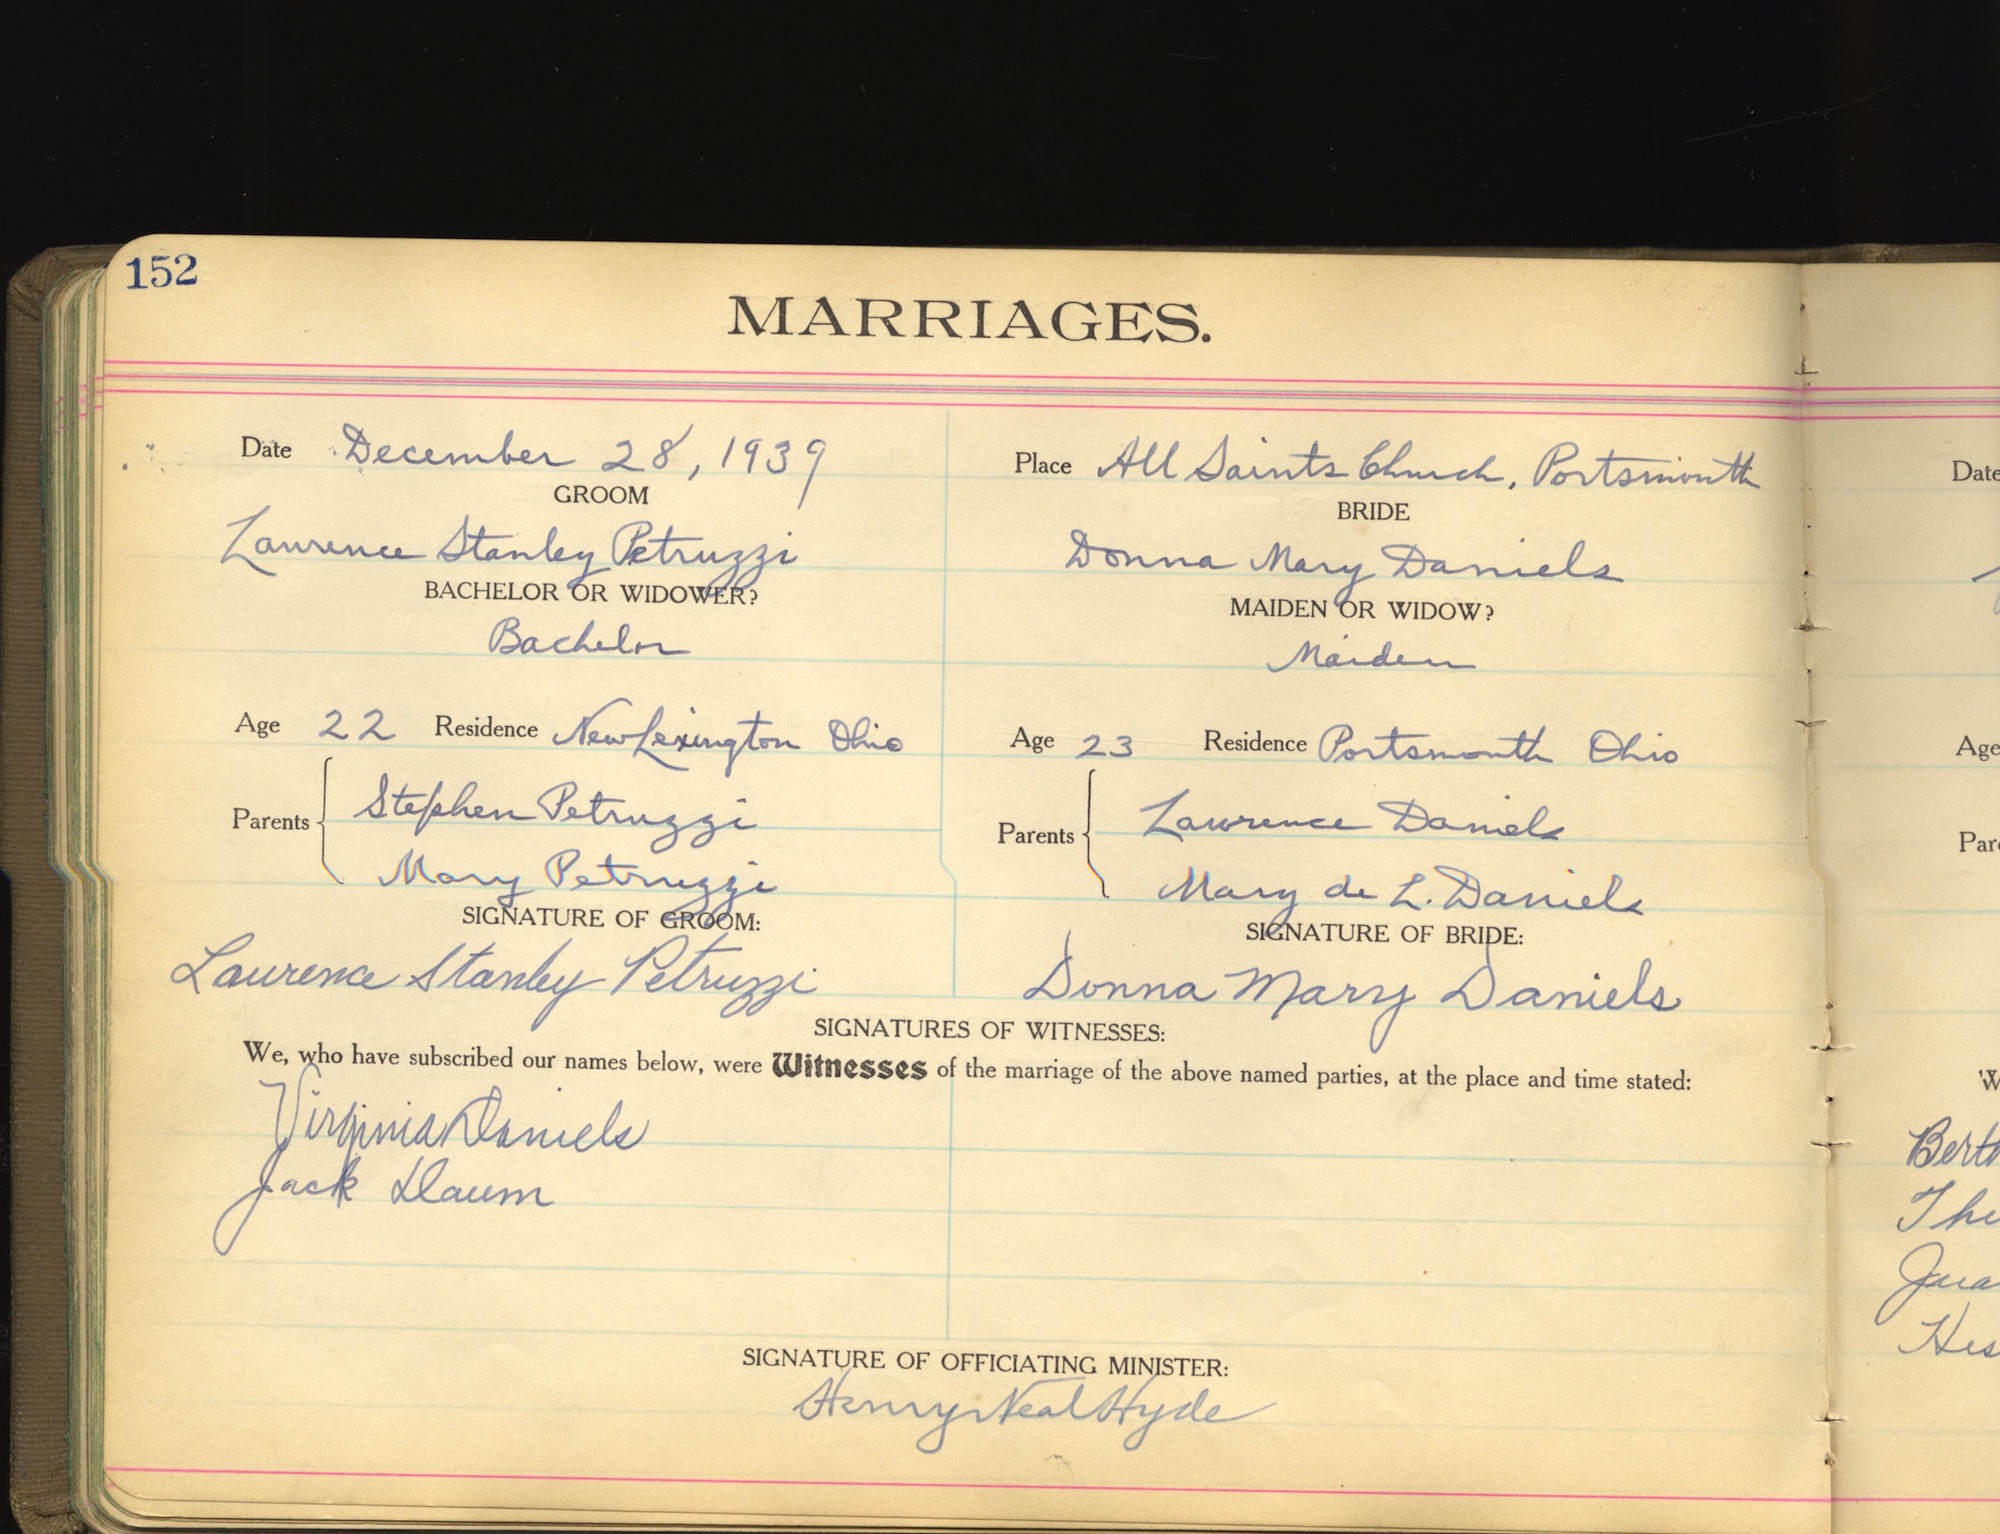 152
MARRIAGES.
Date December 28, 1939
GROOM
Lawrence Stanley Petruzzi
BACHELOR OR WIDOWER?
Bachelor
Age 22 Residence New Lexington Ohio
Parents
Stephen Petruzzi
Mary Petruzzi
SIGNATURE OF GROOM:
Laurence Stanley Petruzzi
Place All Saints Church, Portsmouth
BRIDE
Donna Mary Daniels
MAIDEN OR WIDOW?
Maiden
Age 23 Residence Portsmouth Ohio
Parents
Lawrence Daniels
Mary de L. Daniels
SIGNATURE OF BRIDE:
Donna Mary Daniels
SIGNATURES OF WITNESSES:
We, who have subscribed our names below, were Witnesses of the marriage of the above named parties, at the place and time stated:
Virginia Daniels
Jack Daum
SIGNATURE OF OFFICIATING MINISTER:
Henry Neal Hyde
Date
Age